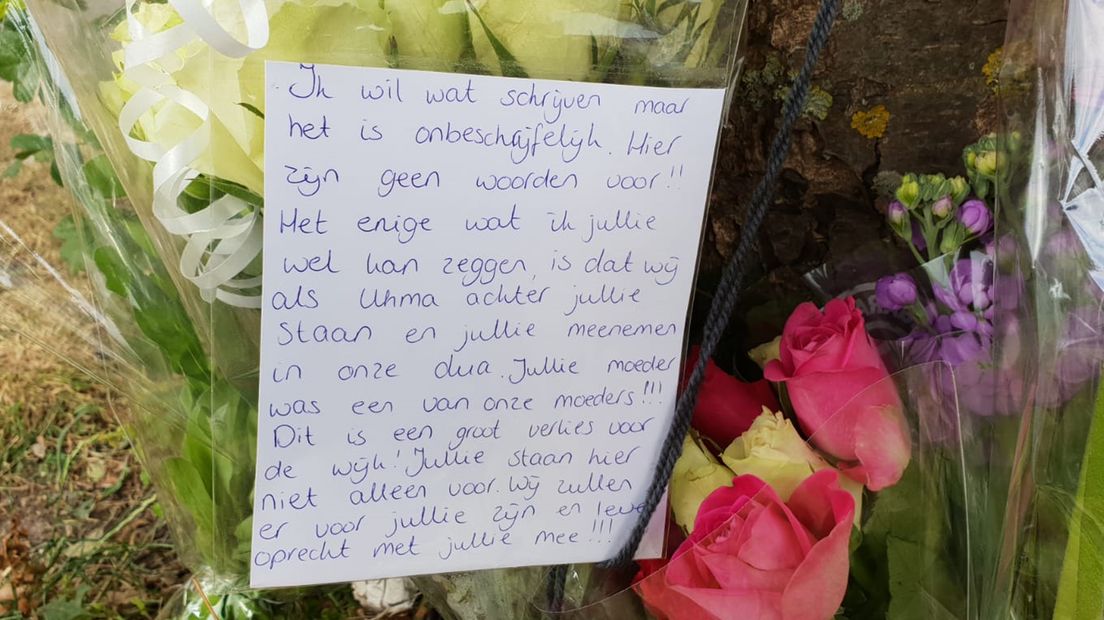 Ik wil wat schrijven maar
het is onbeschrijfelijk. Hier
zijn geen woorden voor!!
Het enige wat ik jullie
wel kan zeggen, is dat wij
als Uhma achter jullie
staan en jullie meenemen
in onze dua. Jullie moeder
was een van onze moeders!!!
Dit is een groot verlies voor
de wijk! Jullie staan hier
niet alleen voor. Wij zullen
er voor jullie zijn en leve
oprecht met jullie mee!!!